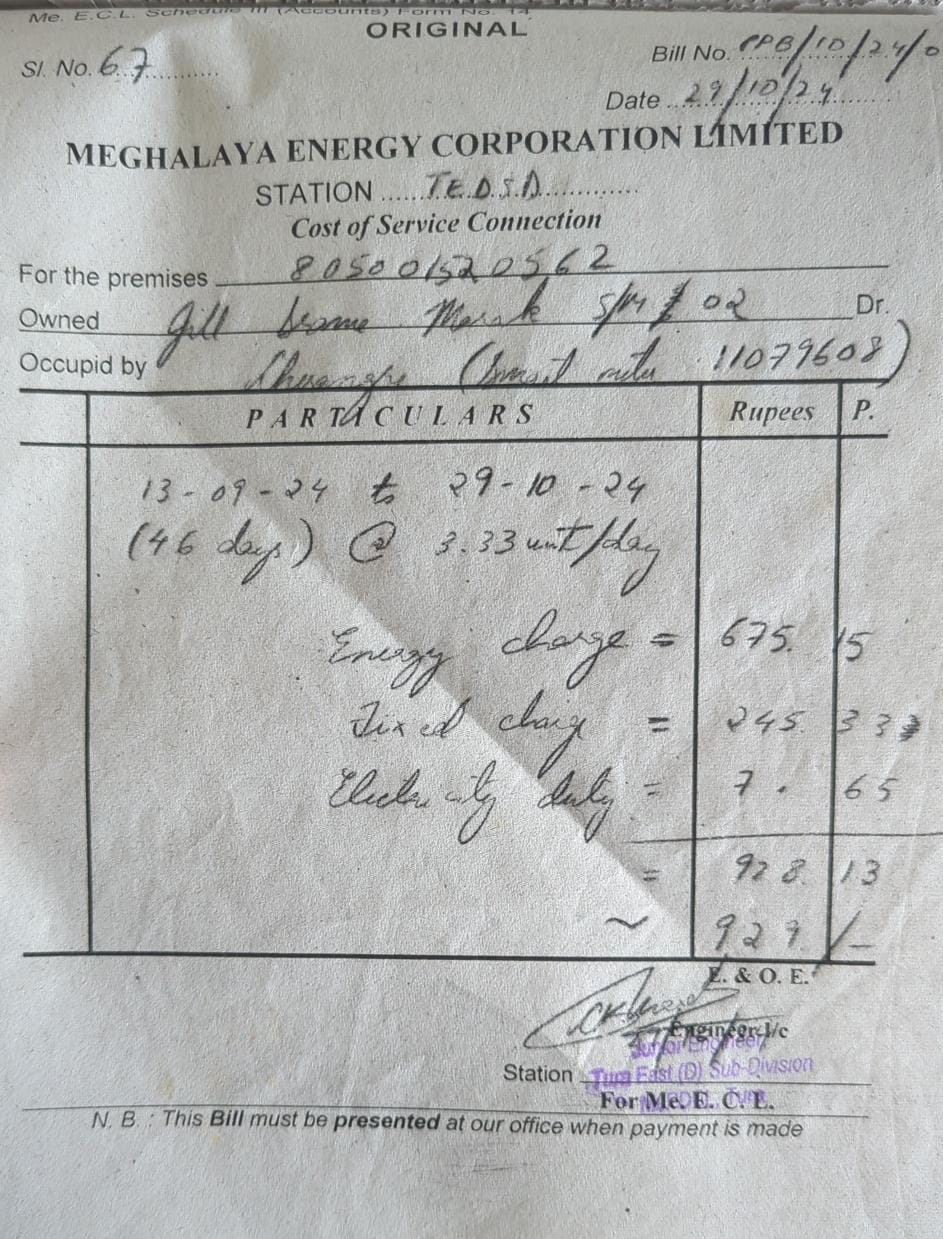 Me. E.C.L. Schedule III (Accounts) Form No. 14
ORIGINAL
Sl. No. 67
Bill No. PPB/10/24/0
Date 29/10/24
MEGHALAYA ENERGY CORPORATION LIMITED
STATION T.E.D.S.D
Cost of Service Connection
For the premises 80500152 0562
Owned Gill Marak 02 Dr.
Occupid by (Smart 11079608)
PARTICULARS Rupees P.
13-09-24 to 29-10-24
(46 days) @ 3.33 unit/day
Energy charge = 675. 15
Fixed charge = 245. 33
Electricity duty = 7. 65
= 928. 13
~ 929/-
E. & O. E.
Engineer-I/c
Junior Engineer
Station Tura East (D) Sub-Division
For Me. E. C. L.
N. B. : This Bill must be presented at our office when payment is made